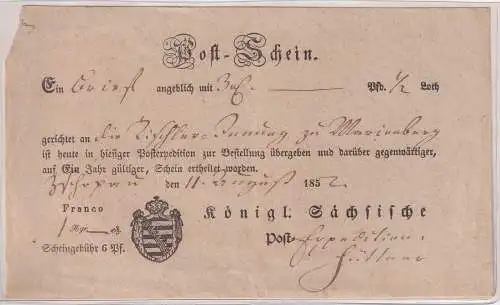 Post-Schein.
Ein Brief angeblich mit Pfd. 1/2 Loth
gerichtet an die Tischler-Innung zu Marienberg
ist heute in hiesiger Postexpedition zur Bestellung übergeben und darüber gegenwärtiger,
auf Ein Jahr gültiger, Schein ertheilet worden.
Zschopau den 11. August 1852.
Franco
1 Ngr.
Scheingebühr 6 Pf.
Königl. Sächsische
Post-Expedition.
Hüttner